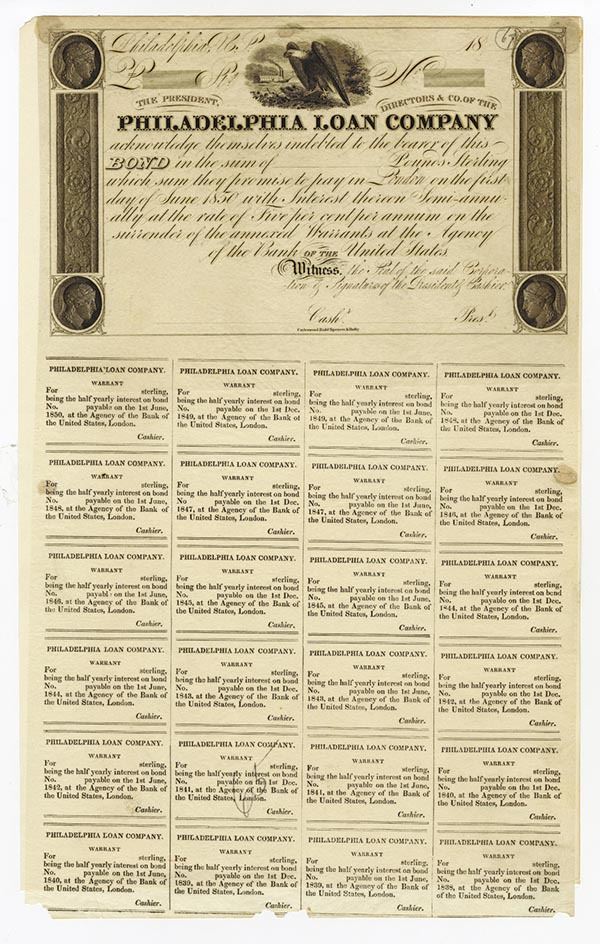 Philadelphia, 18
67
THE PRESIDENT,
DIRECTORS & CO. OF THE
PHILADELPHIA LOAN COMPANY
acknowledge themselves indebted to the bearer of this
BOND in the sum of Pounds Sterling
which sum they promise to pay in London on the first
day of June 1850 with Interest thereon Semi-annu-
ally at the rate of Five per cent per annum on the
surrender of the annexed Warrants at the Agency
of the Bank OF THE United States
Witness, the Seal of the said Corpora-
tion & Signatures of the President & Cashier.
Cashr. Prest.
Underwood Bald Spencer & Hufty
PHILADELPHIA LOAN COMPANY.
WARRANT
For sterling,
being the half yearly interest on bond
No. payable on the 1st June,
1850, at the Agency of the Bank of
the United States, London.
Cashier.
PHILADELPHIA LOAN COMPANY.
WARRANT
For sterling,
being the half yearly interest on bond
No. payable on the 1st Dec.
1849, at the Agency of the Bank of
the United States, London.
Cashier.
PHILADELPHIA LOAN COMPANY.
WARRANT
For sterling,
being the half yearly interest on bond
No. payable on the 1st June,
1849, at the Agency of the Bank of
the United States, London.
Cashier.
PHILADELPHIA LOAN COMPANY.
WARRANT
For sterling,
being the half yearly interest on bond
No. payable on the 1st Dec.
1848, at the Agency of the Bank of
the United States, London.
Cashier.
PHILADELPHIA LOAN COMPANY.
WARRANT
For sterling,
being the half yearly interest on bond
No. payable on the 1st June,
1848, at the Agency of the Bank of
the United States, London.
Cashier.
PHILADELPHIA LOAN COMPANY.
WARRANT
For sterling,
being the half yearly interest on bond
No payable on the 1st Dec.
1847, at the Agency of the Bank of
the United States, London.
Cashier.
PHILADELPHIA LOAN COMPANY.
WARRANT
For sterling,
being the half yearly interest on bond
No. payable on the 1st June,
1847, at the Agency of the Bank of
the United States, London.
Cashier.
PHILADELPHIA LOAN COMPANY.
WARRANT
For sterling,
being the half yearly interest on bond
No. payable on the 1st Dec.
1846, at the Agency of the Bank of
the United States, London.
Cashier.
PHILADELPHIA LOAN COMPANY.
WARRANT
For sterling,
being the half yearly interest on bond
No. payable on the 1st June,
1846, at the Agency of the Bank of
the United States, London.
Cashier.
PHILADELPHIA LOAN COMPANY.
WARRANT
For sterling,
being the half yearly interest on bond
No. payable on the 1st Dec.
1845, at the Agency of the Bank of
the United States, London.
Cashier.
PHILADELPHIA LOAN COMPANY.
WARRANT
For sterling,
being the half yearly interest on bond
No. payable on the 1st June,
1845, at the Agency of the Bank of
the United States, London.
Cashier.
PHILADELPHIA LOAN COMPANY.
WARRANT
For sterling,
being the half yearly interest on bond
No. payable on the 1st Dec.
1844, at the Agency of the Bank of
the United States, London.
Cashier.
PHILADELPHIA LOAN COMPANY.
WARRANT
For sterling,
being the half yearly interest on bond
No. payable on the 1st June,
1844, at the Agency of the Bank of
the United States, London.
Cashier.
PHILADELPHIA LOAN COMPANY.
WARRANT
For sterling,
being the half yearly interest on bond
No. payable on the 1st Dec.
1843, at the Agency of the Bank of
the United States, London.
Cashier.
PHILADELPHIA LOAN COMPANY.
WARRANT
For sterling,
being the half yearly interest on bond
No. payable on the 1st June,
1843, at the Agency of the Bank of
the United States, London.
Cashier.
PHILADELPHIA LOAN COMPANY.
WARRANT
For sterling,
being the half yearly interest on bond
No. payable on the 1st Dec.
1842, at the Agency of the Bank of
the United States, London.
Cashier.
PHILADELPHIA LOAN COMPANY.
WARRANT
For sterling,
being the half yearly interest on bond
No. payable on the 1st June,
1842, at the Agency of the Bank of
the United States, London.
Cashier.
PHILADELPHIA LOAN COMPANY.
WARRANT
For sterling,
being the half yearly interest on bond
No. payable on the 1st Dec.
1841, at the Agency of the Bank of
the United States, London.
Cashier.
PHILADELPHIA LOAN COMPANY.
WARRANT
For sterling,
being the half yearly interest on bond
No. payable on the 1st June,
1841, at the Agency of the Bank of
the United States, London.
Cashier.
PHILADELPHIA LOAN COMPANY.
WARRANT
For sterling,
being the half yearly interest on bond
No. payable on the 1st Dec.
1840, at the Agency of the Bank of
the United States, London.
Cashier.
PHILADELPHIA LOAN COMPANY.
WARRANT
For sterling,
being the half yearly interest on bond
No. payable on the 1st June,
1840, at the Agency of the Bank of
the United States, London.
Cashier.
PHILADELPHIA LOAN COMPANY.
WARRANT
For sterling,
being the half yearly interest on bond
No. payable on the 1st Dec.
1839, at the Agency of the Bank of
the United States, London.
Cashier.
PHILADELPHIA LOAN COMPANY.
WARRANT
For sterling,
being the half yearly interest on bond
No. payable on the 1st June,
1839, at the Agency of the Bank of
the United States, London.
Cashier.
PHILADELPHIA LOAN COMPANY.
WARRANT
For sterling,
being the half yearly interest on bond
No. payable on the 1st Dec.
1838, at the Agency of the Bank of
the United States, London.
Cashier.